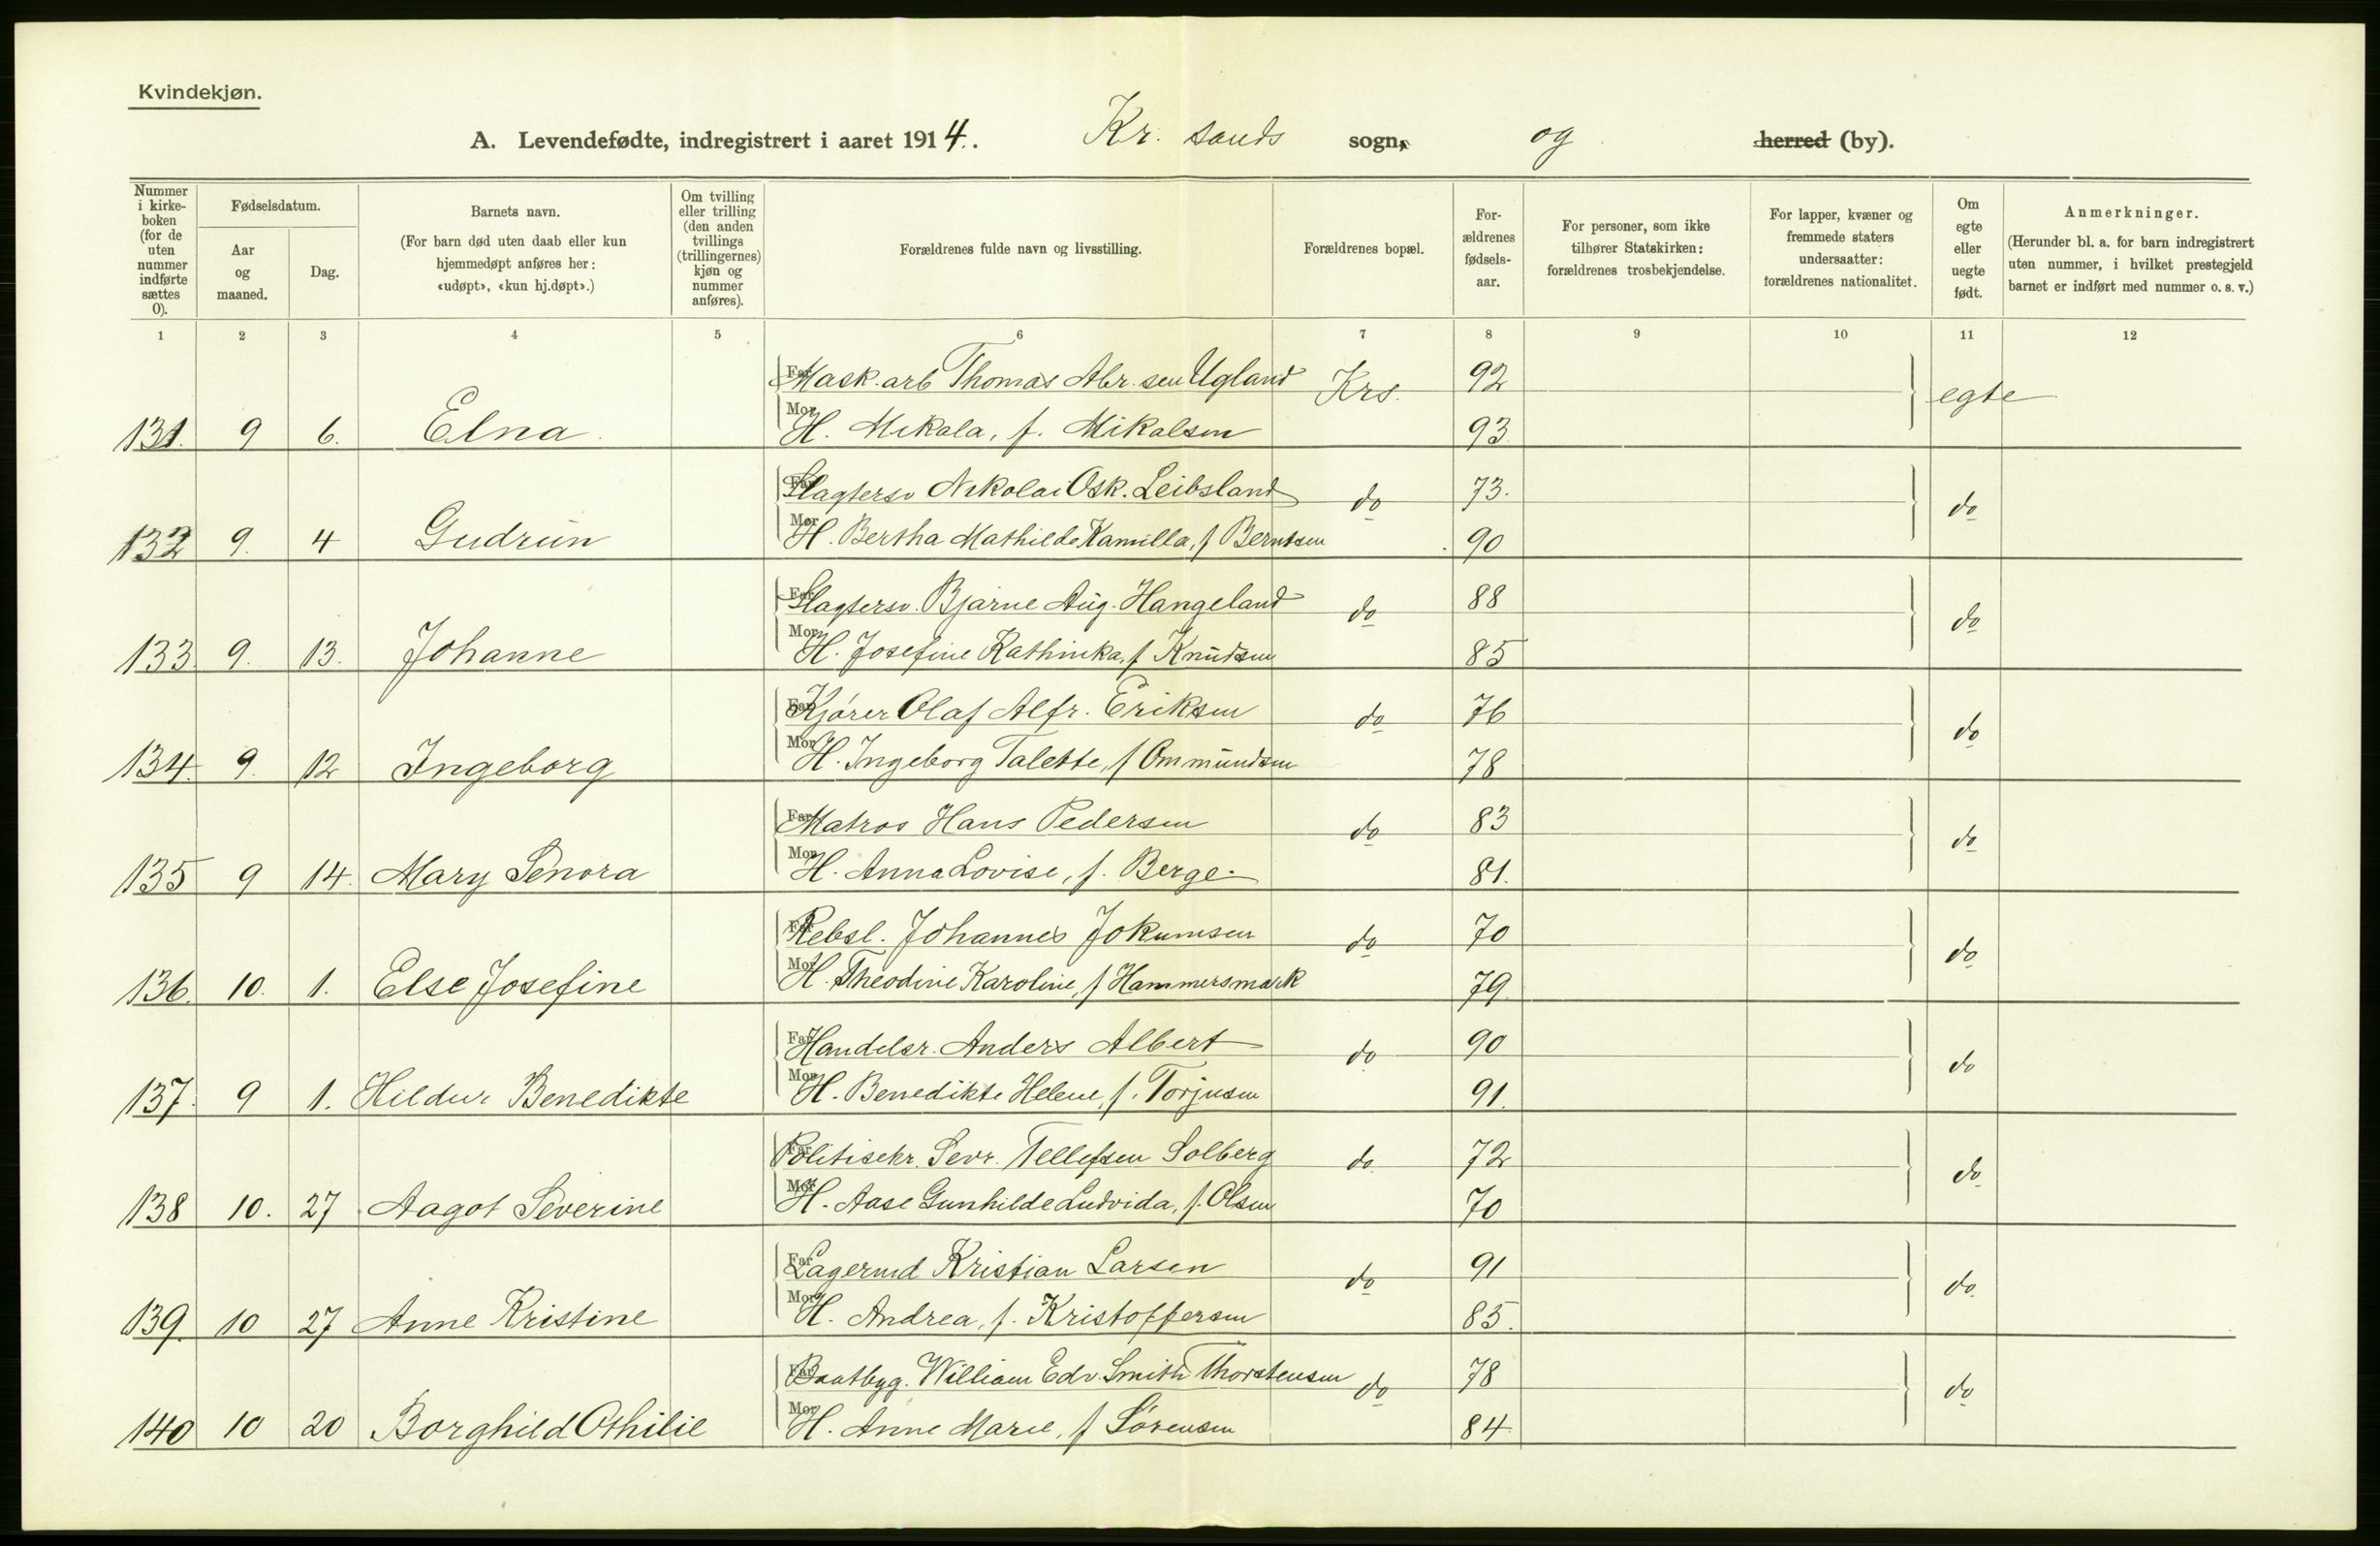 Kvindekjøn.
A. Levendefødte, indregistrert i aaret 1914. Kr. sands sogn, og herred (by).
Nummer i kirke-boken (for de uten nummer indførte sættes 0).
Fødselsdatum.
Aar og maaned.
Dag.
Barnets navn.
(For barn død uten daab eller kun hjemmedøpt anføres her: «udøpt», «kun hj.døpt».)
Om tvilling eller trilling (den anden tvillings (trillingernes) kjøn og nummer anføres).
Forældrenes fulde navn og livsstilling.
Forældrenes bopæl.
For-ældrenes fødsels-aar.
For personer, som ikke tilhører Statskirken: forældrenes trosbekjendelse.
For lapper, kvæner og fremmede staters undersaatter: forældrenes nationalitet.
Om egte eller uegte født.
Anmerkninger.
(Herunder bl. a. for barn indregistrert uten nummer, i hvilket prestegjeld barnet er indført med nummer o. s. v.)
1 2 3 4 5 6 7 8 9 10 11 12
Far Mask.arb Thomas Abr.sen Ugland Krs. 92 egte
131. 9 6. Elna. Mor H. Mikala, f. Mikalsen 93
Far Slagtersv Nikolai Osk. Leibsland do 73. do
132 9. 4 Gudrun Mor H. Bertha Mathilde Kamilla, f Berntsen 90
Far Slagtersv. Bjarne Aug. Hangeland do 88 do
133 9. 13. Johanne Mor H. Josefine Kathinka, f Knudsen 85
Far Kjører Olaf Alfr. Eriksen do 76 do
134. 9. 12 Ingeborg Mor H. Ingeborg Talette, f Ommundsen 78
Far Matros Hans Pedersen do 83 do
135 9 14. Mary Senora Mor H. Anna Lovise, f. Berge. 81.
Far Rebsl. Johannes Jokumsen do 70 do
136. 10. 1. Else Josefine Mor H. Theodine Karoline, f Hammersmark 79.
Far Handelsr. Anders Albert do 90 do
137. 9 1. Hildur Benedikte Mor H. Benedikte Helene, f. Torjusen 91.
Far Politisekr. Sevr. Tellefsen Solberg do 72 do
138 10. 27 Aagot Severine Mor H. Aase Gunhilde Ludvida, f. Olsen 70
Far Lagermd Kristian Larsen do 91 do
139. 10 27 Anne Kristine Mor H. Andrea, f. Kristoffersen 85.
Far Baatbyg. William Edv. Smith Thorstensen do 78 do
140 10 20 Borghild Othilie Mor H. Anne Marie, f Sørensen 84